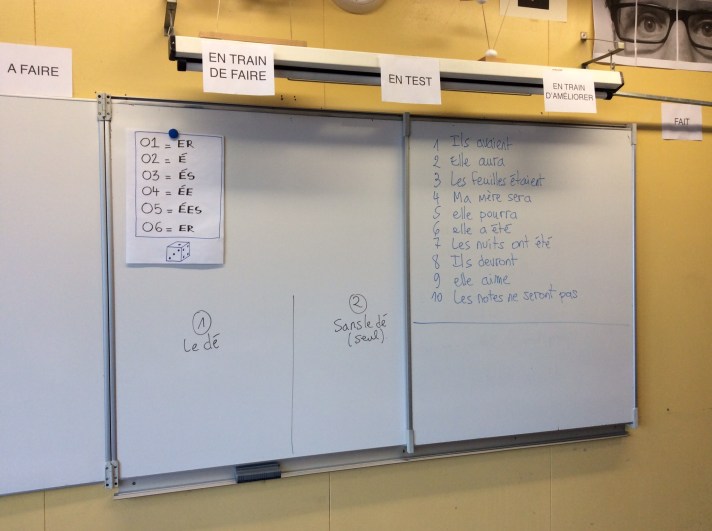 A FAIRE
EN TRAIN
DE FAIRE
EN TEST
EN TRAIN
D'AMÉLIORER
FAIT
01 = ER
02 = É
03 = ÉS
04 = ÉE
05 = ÉES
06 = ER
1
Le dé
2
Sans le dé
(seul)
1 Ils avaient
2 Elle aura
3 Les feuilles étaient
4 Ma mère sera
5 elle pourra
6 elle a été
7 Les nuits ont été
8 Ils devront
9 elle aime
10 Les notes ne seront pas